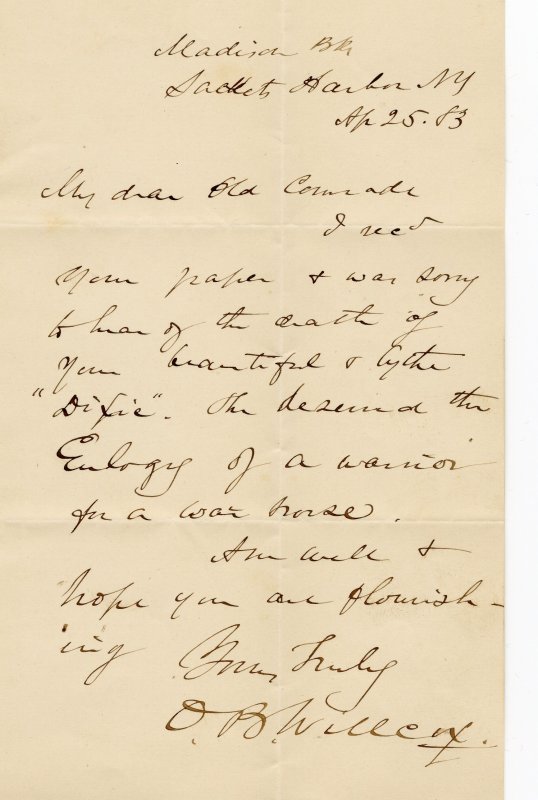 Madison Bks
Sackets Harbor NY
Ap 25. 83
My dear Old Comrade
I recd
your paper & was sorry
to hear of the death of
your beautiful & lythe
"Dixie". She deserved the
Eulogy of a warrior
for a war horse.
Am well &
hope you are flourish-
ing
Yours Truly
O. B. Willcox.